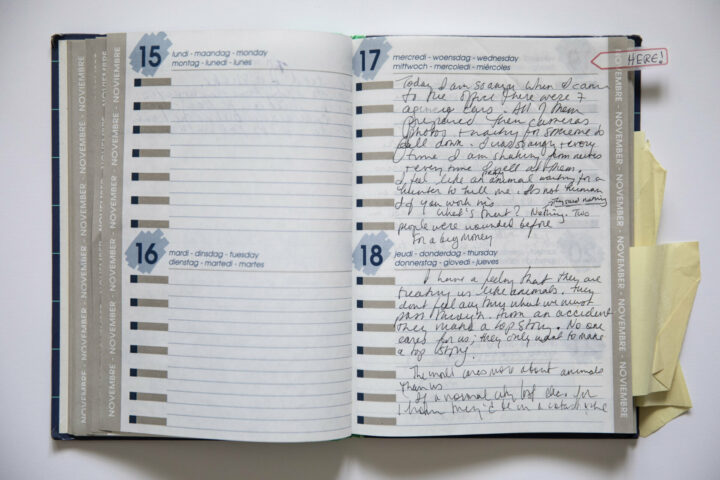 NOVEMBRE - NOVEMBER - NOVIEMBRE
15 lundi - maandag - monday
montag - lunedi - lunes
16 mardi - dinsdag - tuesday
dienstag - martedi - martes
17 mercredi - woensdag - wednesday
mittwoch - mercoledi - miércoles
HERE!
Today I am so angry when I came
to the office there were 7
agency cars. All of them
prepared their cameras
photos + waiting for someone to
fall down. I was so angry + every
time I am shaking from nerves
+ every time I yell at them.
I feel like an animal waiting for a
hunter to kill me. It's not human
If you work
they said nothing
What's that? Nothing. Two
people were wounded before
For a big money
18 jeudi - donderdag - thursday
donnerstag - giovedi - jueves
I have a feeling that they are
treating us like animals. They
don't feel any thing what we must
pass through. From an accident
they make a top story. No one
cares for us; they only want to make
a top story.
The world cares more about animals
than us
If a normal city lost
they'd be in a catastrophe
NOVEMBRE - NOVEMBER - NOVIEMBRE